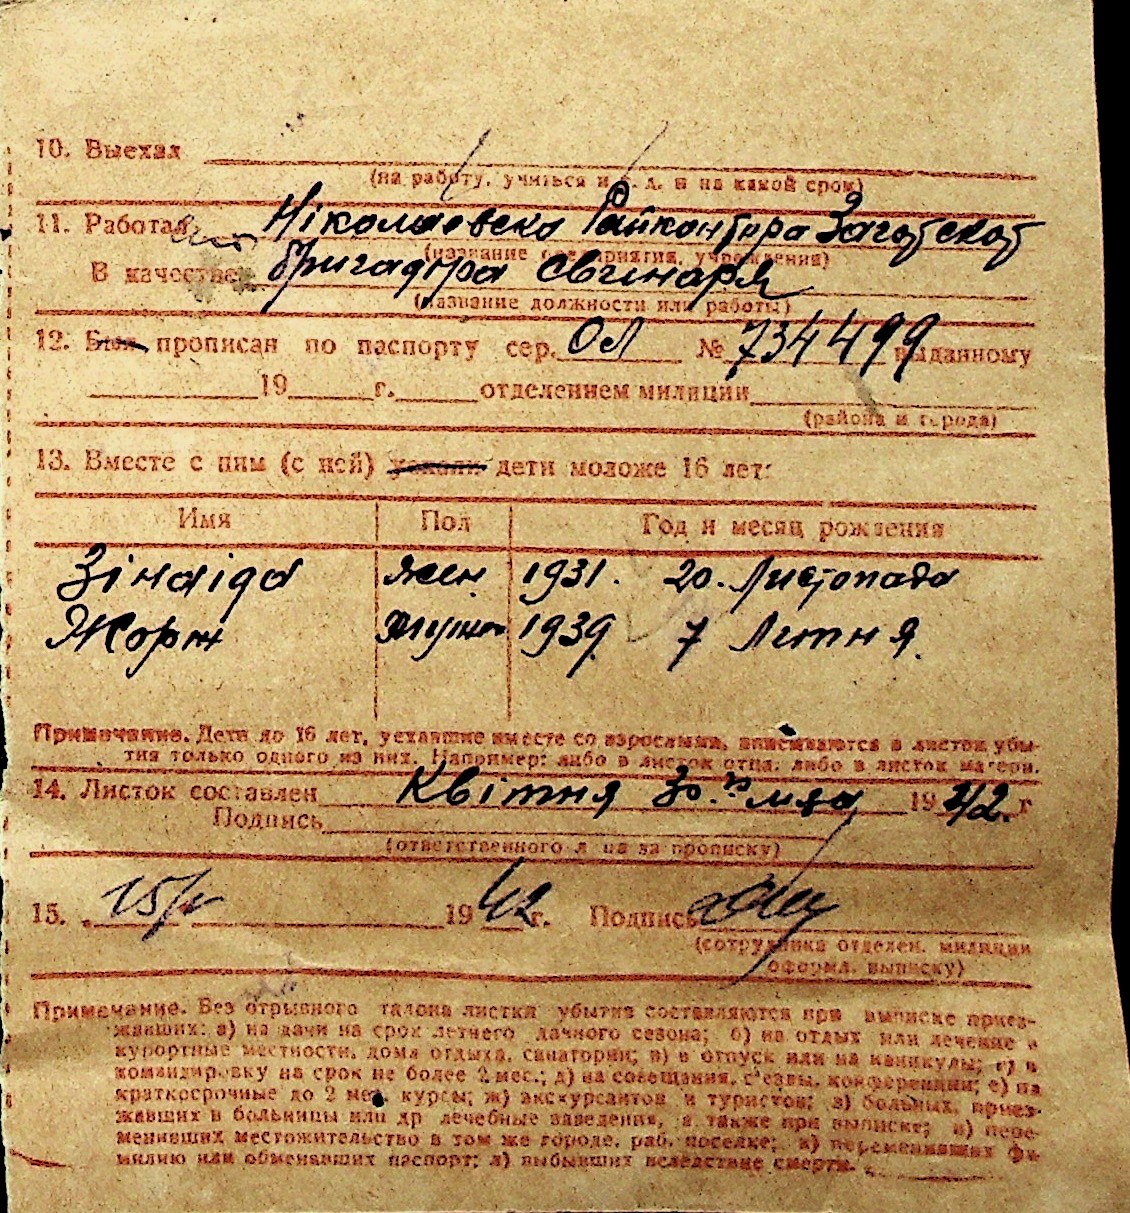 10. Выехал
(на работу, учиться и т. д. и на какой срок)
11. Работал Ніколаевско Райконтора Заготскот
(название предприятия, учреждения)
В качестве бригадіра свинаря
(название должности или работы)
12. Был прописан по паспорту сер. ОЛ № 734499 выданному
19 г. отделением милиции
(района и города)
13. Вместе с ним (с ней) уехали дети моложе 16 лет:
Имя Пол Год и месяц рождения
Зінаіда жен. 1931. 20. Листопада
Жорж Мужч 1939. 7 Літня.
Примечание. Дети до 16 лет, уехавшие вместе со взрослыми, вписываются в листок убы-
тия только одного из них. Например: либо в листок отца, либо в листок матери.
14. Листок составлен Квітня 30 1942. г
Подпись
(ответственного лица за прописку)
15. 15/V 1942 г. Подпись
(сотрудника отделен. милиции
оформл. выписку)
Примечание. Без отрывного талона листки убытия составляются при выписке приез-
жавших: а) на дачи на срок летнего дачного сезона; б) на отдых или лечение в
курортные местности, дома отдыха, санатории; в) в отпуск или на каникулы; г) в
командировку на срок не более 2 мес.; д) на совещания, с'езды, конференции; е) на
краткосрочные до 2 мес. курсы; ж) экскурсантов и туристов; з) больных, приез-
жавших в больницы или др лечебные заведения, а также при выписке; и) пере-
менивших местожительство в том же городе, раб. поселке; к) переменивших фа-
милию или обменявших паспорт; л) выбывших вследствие смерти.